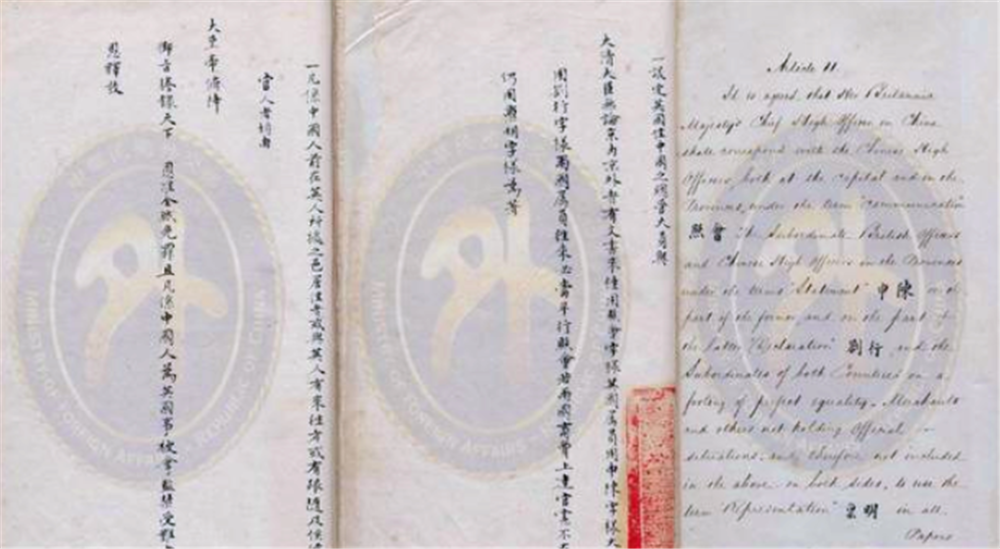 Article 11.
It is agreed that Her Britannic
Majesty's Chief High Officer in China
shall correspond with the Chinese High
Officers, both at the capital and in the
Provinces, under the term "communication"
照會 the Subordinate British Officers
and Chinese High Officers in the Provinces
under the terms "Statement" 申陳 on the
part of the former, and on the part of
the latter "Declaration" 劄行 and the
Subordinates of both Countries on a
footing of perfect equality. Merchants
and others not holding Official
situations, and therefore not included
in the above, on both sides, to use the
term "Representation" 稟明 in all
Papers
一議定英國住中國之總管大員與
大清大臣無論京內京外者有文書來往用照會字樣英國屬員用申陳字樣大
用劄行字樣兩國屬員往來必當平行照會若兩國商賈上達官憲不
仍用稟明字樣為著
一凡係中國人前在英人所據之邑居住者或與英人有來往者或有跟隨及俟
官人者均由
大皇帝俯降
御旨謄錄天下 恩准全然免罪且凡係中國人為英國事被拏監禁受難
恩釋放
MINISTRY OF FOREIGN AFFAIRS REPUBLIC OF CHINA